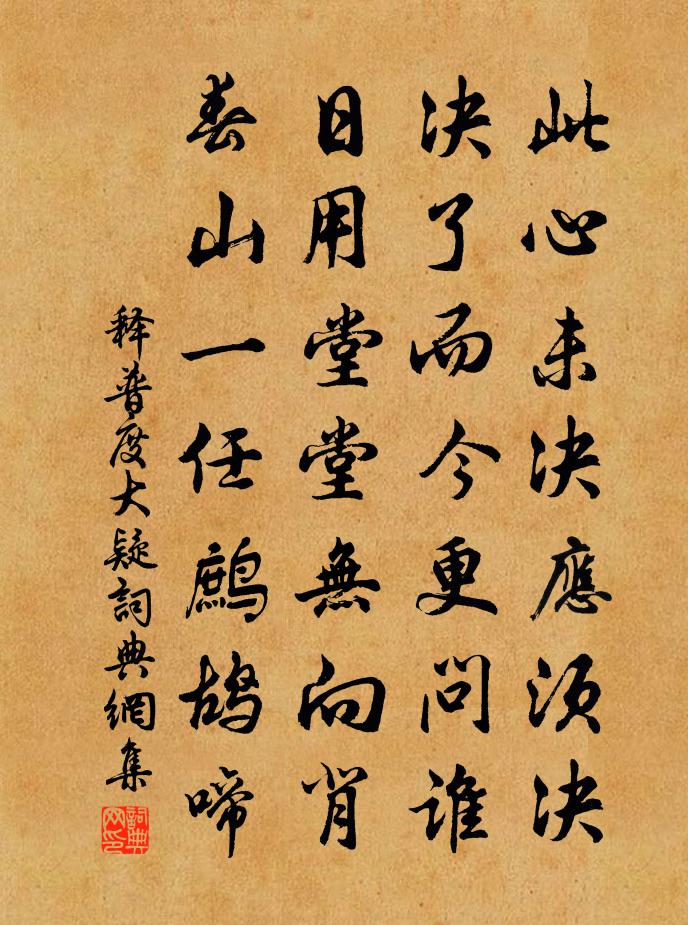 此心未决應須决
决了而今更問誰
日用堂堂無向背
春山一任鷓鴣啼
釋普度大疑詞典網集
詞典网印